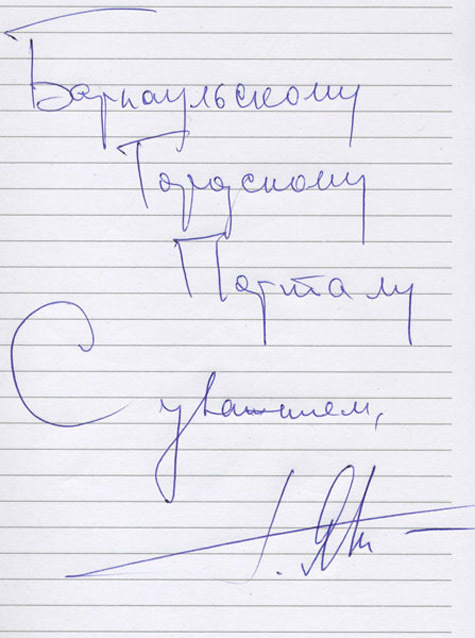 Барнаульскому
Городскому
Порталу
С уважением,